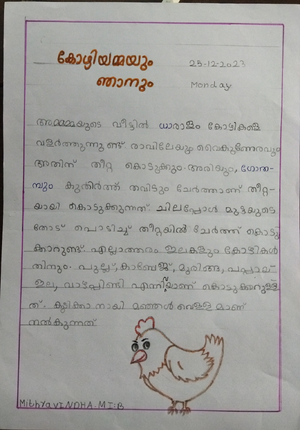 കോഴിയമ്മയും
ഞാനും
25-12-2023
Monday
അമ്മമ്മയുടെ വീട്ടിൽ ധാരാളം കോഴികളെ
വളർത്തുന്നുണ്ട് രാവിലേയും വൈകുന്നേരവും
അതിന് തീറ്റ കൊടുക്കും. അരിയും, ഗോത-
മ്പും കുതിർത്ത് തവിടും ചേർത്താണ് തീറ്റ-
യായി കൊടുക്കുന്നത്. ചിലപ്പോൾ മുട്ടയുടെ
തോട് പൊടിച്ച് തീറ്റയിൽ ചേർത്ത് കൊടു
ക്കാറുണ്ട് എല്ലാത്തരം ഇലകളും കോഴികൾ
തിന്നും. പുല്ല്, കാബേജ്, മുരിങ്ങ, പപ്പായ
ഇല, വാഴപ്പിണ്ടി എന്നിയാണ് കൊടുക്കാറുള്ള
ത്. കുടിക്കാനായി മഞ്ഞൾ വെള്ളമാണ്
നൽകുന്നത്
MithraviNDHA.M I:B